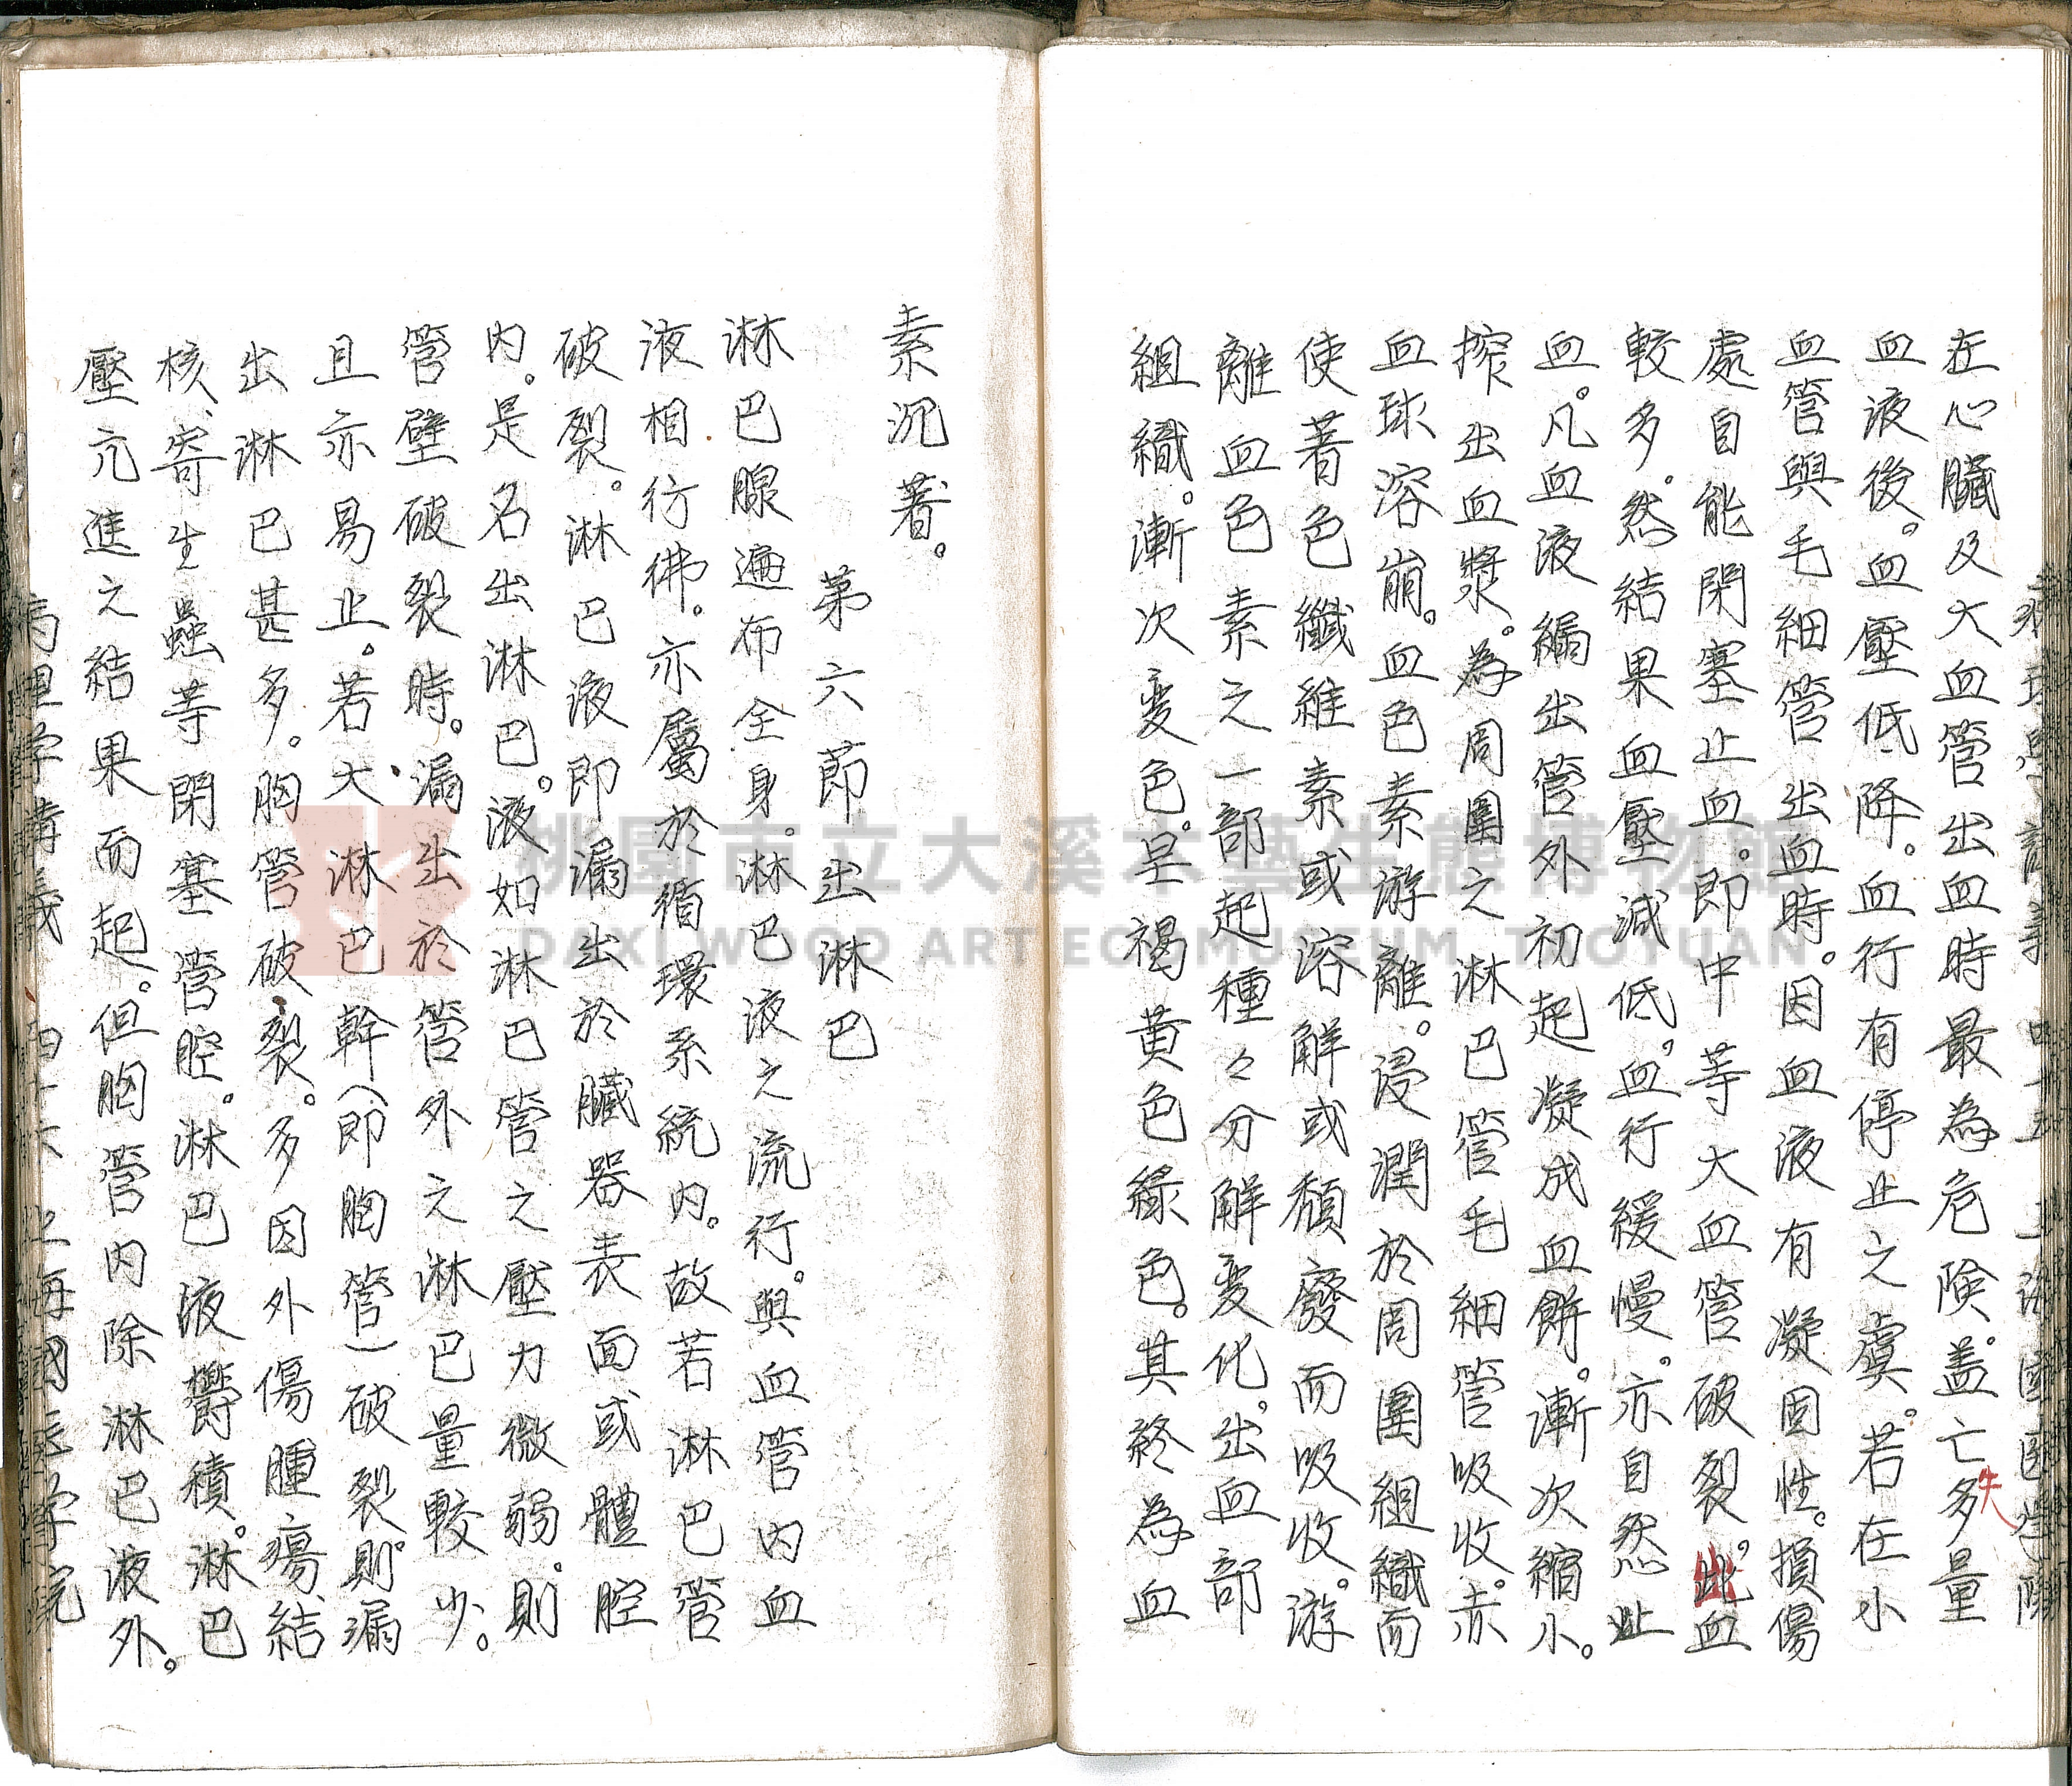 在心臟及大血管出血時最為危険。盖亡失多量
血液後。血壓低降。血行有停止之虞。若在小
血管與毛細管出血時。因血液有凝固性。損傷
處自能閉塞止血。即中等大血管破裂。出血
較多。然結果血壓減低。血行緩慢。亦自然止
血。凡血液編出管外初起凝成血餅。漸次縮小。
搾出血漿。為周圍之淋巴管毛細管吸收。赤
血球溶崩。血色素游離。浸潤於周圍組織而
使著色纖維素或溶解或頹廢而吸收。游
離血色素之一部起種々分解変化。出血部
組織。漸次変色。呈褐黃色綠色。其終為血
素沉著。
第六節 出淋巴
淋巴腺遍布全身。淋巴液之流行。與血管内血
液相彷彿。亦屬於循環系統内。故若淋巴管
破裂。淋巴液即漏出於臟器表面或體腔
内。是名出淋巴。液如淋巴管之壓力微弱。則
管壁破裂時。漏出於管外之淋巴量較少。
且亦易止。若大淋巴幹(即胸管)破裂則。漏
出淋巴甚多。胸管破裂。多因外傷腫瘍、結
核、寄生蟲等閉塞管腔。淋巴液欝積。淋巴
壓亢進之結果而起。但胸管内除淋巴液外。
桃園市立大溪木藝生態博物館
DAXI WOOD ART ECOMUSEUM, TAOYUAN